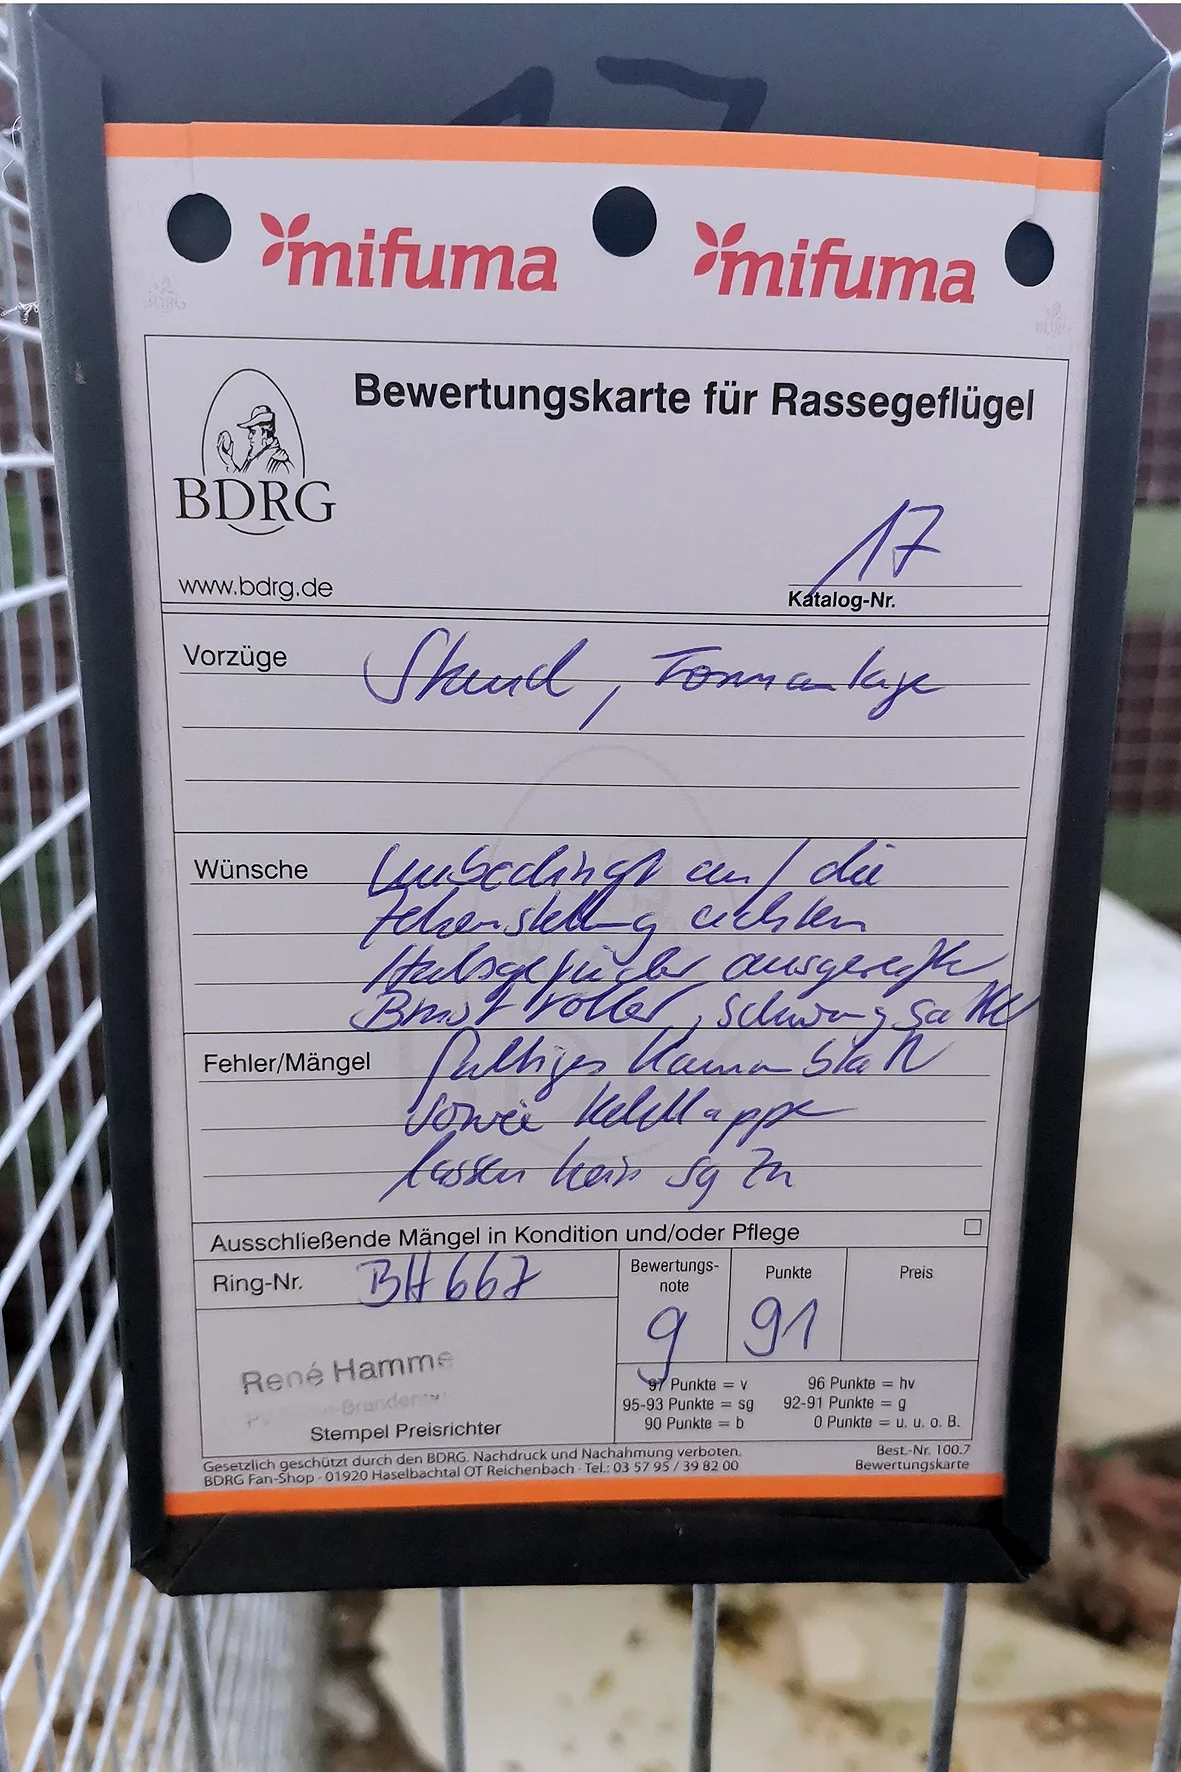 17
mifuma mifuma
Bewertungskarte für Rassegeflügel
BDRG
www.bdrg.de
17
Katalog-Nr.
Vorzüge Stand, Formanlage
Wünsche Unbedingt auf die
Zehenstellung achten
Halsgefieder ausgereifter
Brust voller, schwung
Fehler/Mängel faltiges Kammblatt
sowie Kehllappe
lassen kein sg zu
Ausschließende Mängel in Kondition und/oder Pflege
Ring-Nr. BH 667
Bewertungs-
note
g
Punkte
91
Preis
René Hamme
Stempel Preisrichter
97 Punkte = v 96 Punkte = hv
95-93 Punkte = sg 92-91 Punkte = g
90 Punkte = b 0 Punkte = u. u. o. B.
Gesetzlich geschützt durch den BDRG. Nachdruck und Nachahmung verboten.
BDRG Fan-Shop · 01920 Haselbachtal OT Reichenbach · Tel.: 03 57 95 / 39 82 00
Best.-Nr. 100.7
Bewertungskarte